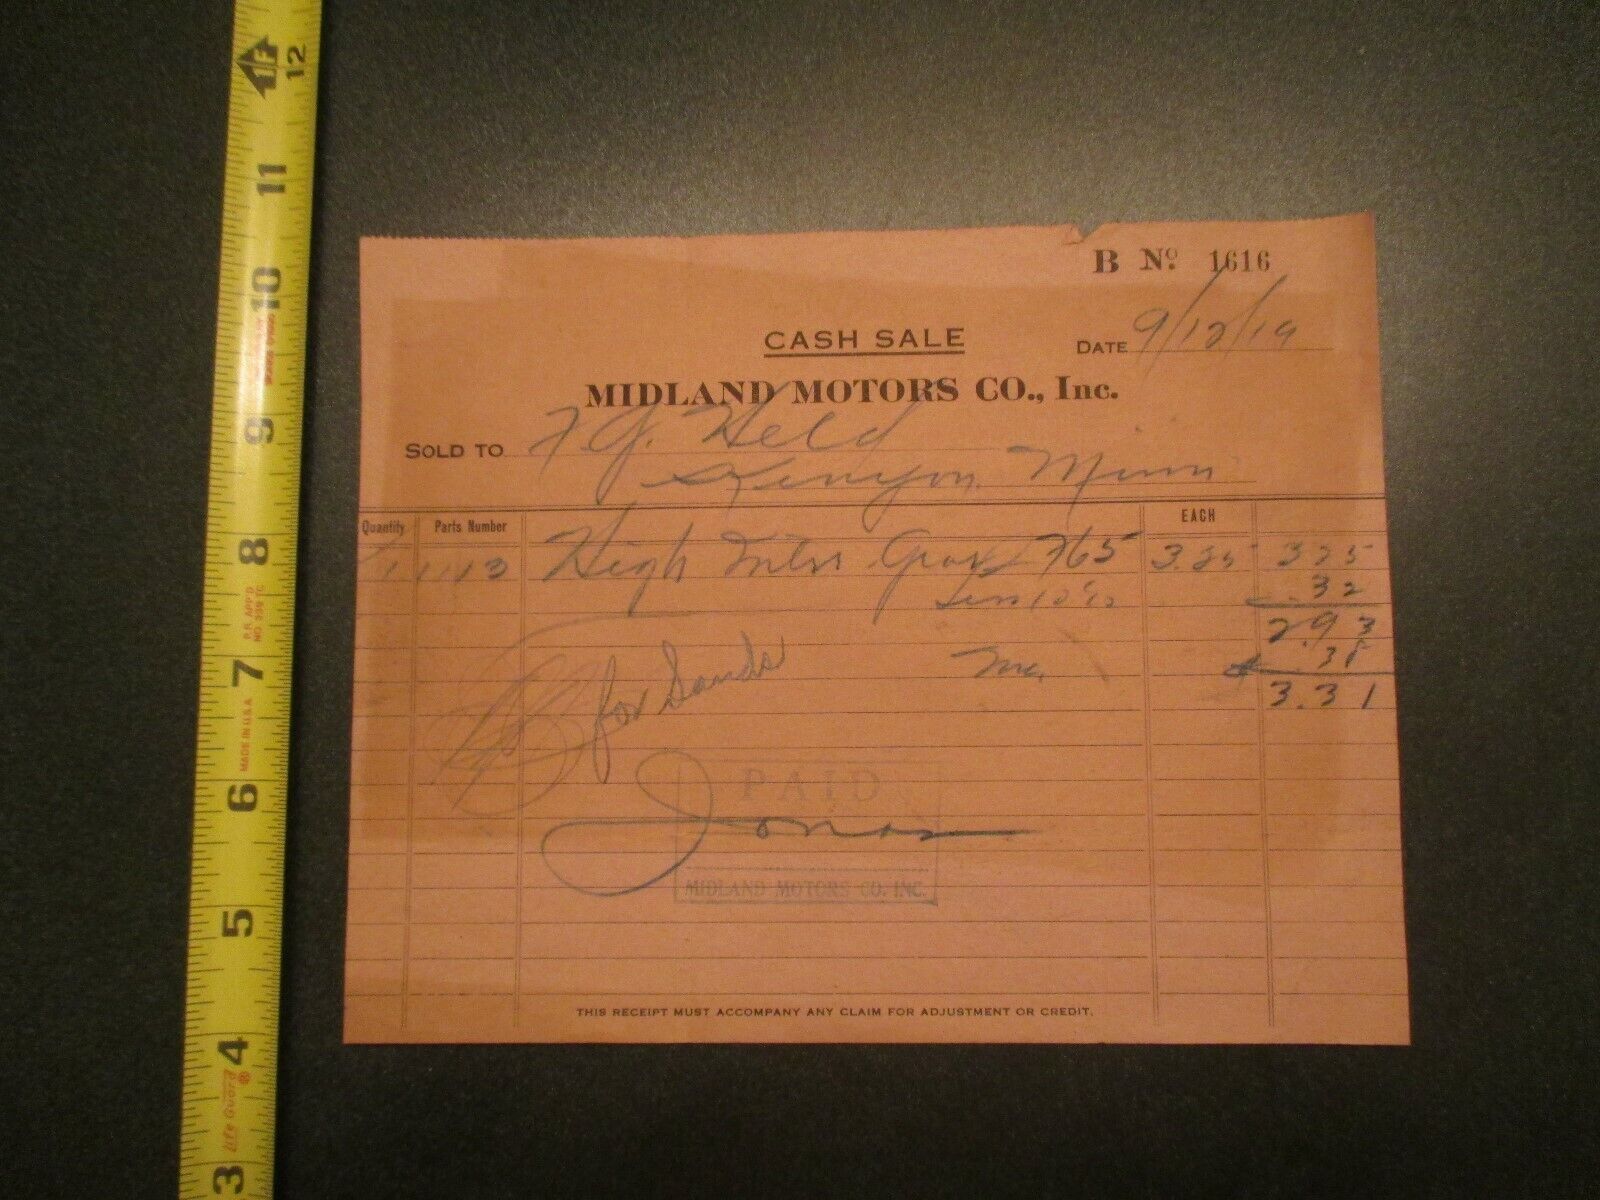 B Nº 1616
CASH SALE
DATE 9/12/19
MIDLAND MOTORS CO., Inc.
SOLD TO F G. Held
Kenyon, Minn
Quantity Parts Number EACH
1 1113 High Inter Gear 765 3.25 325
Less 10% .32
2.93
for Sands .38
3.31
PAID
Jonas
MIDLAND MOTORS CO., INC.
THIS RECEIPT MUST ACCOMPANY ANY CLAIM FOR ADJUSTMENT OR CREDIT.
12
11
10
9
8
7
6
5
4
3
MADE IN U.S.A
Life Guard ®